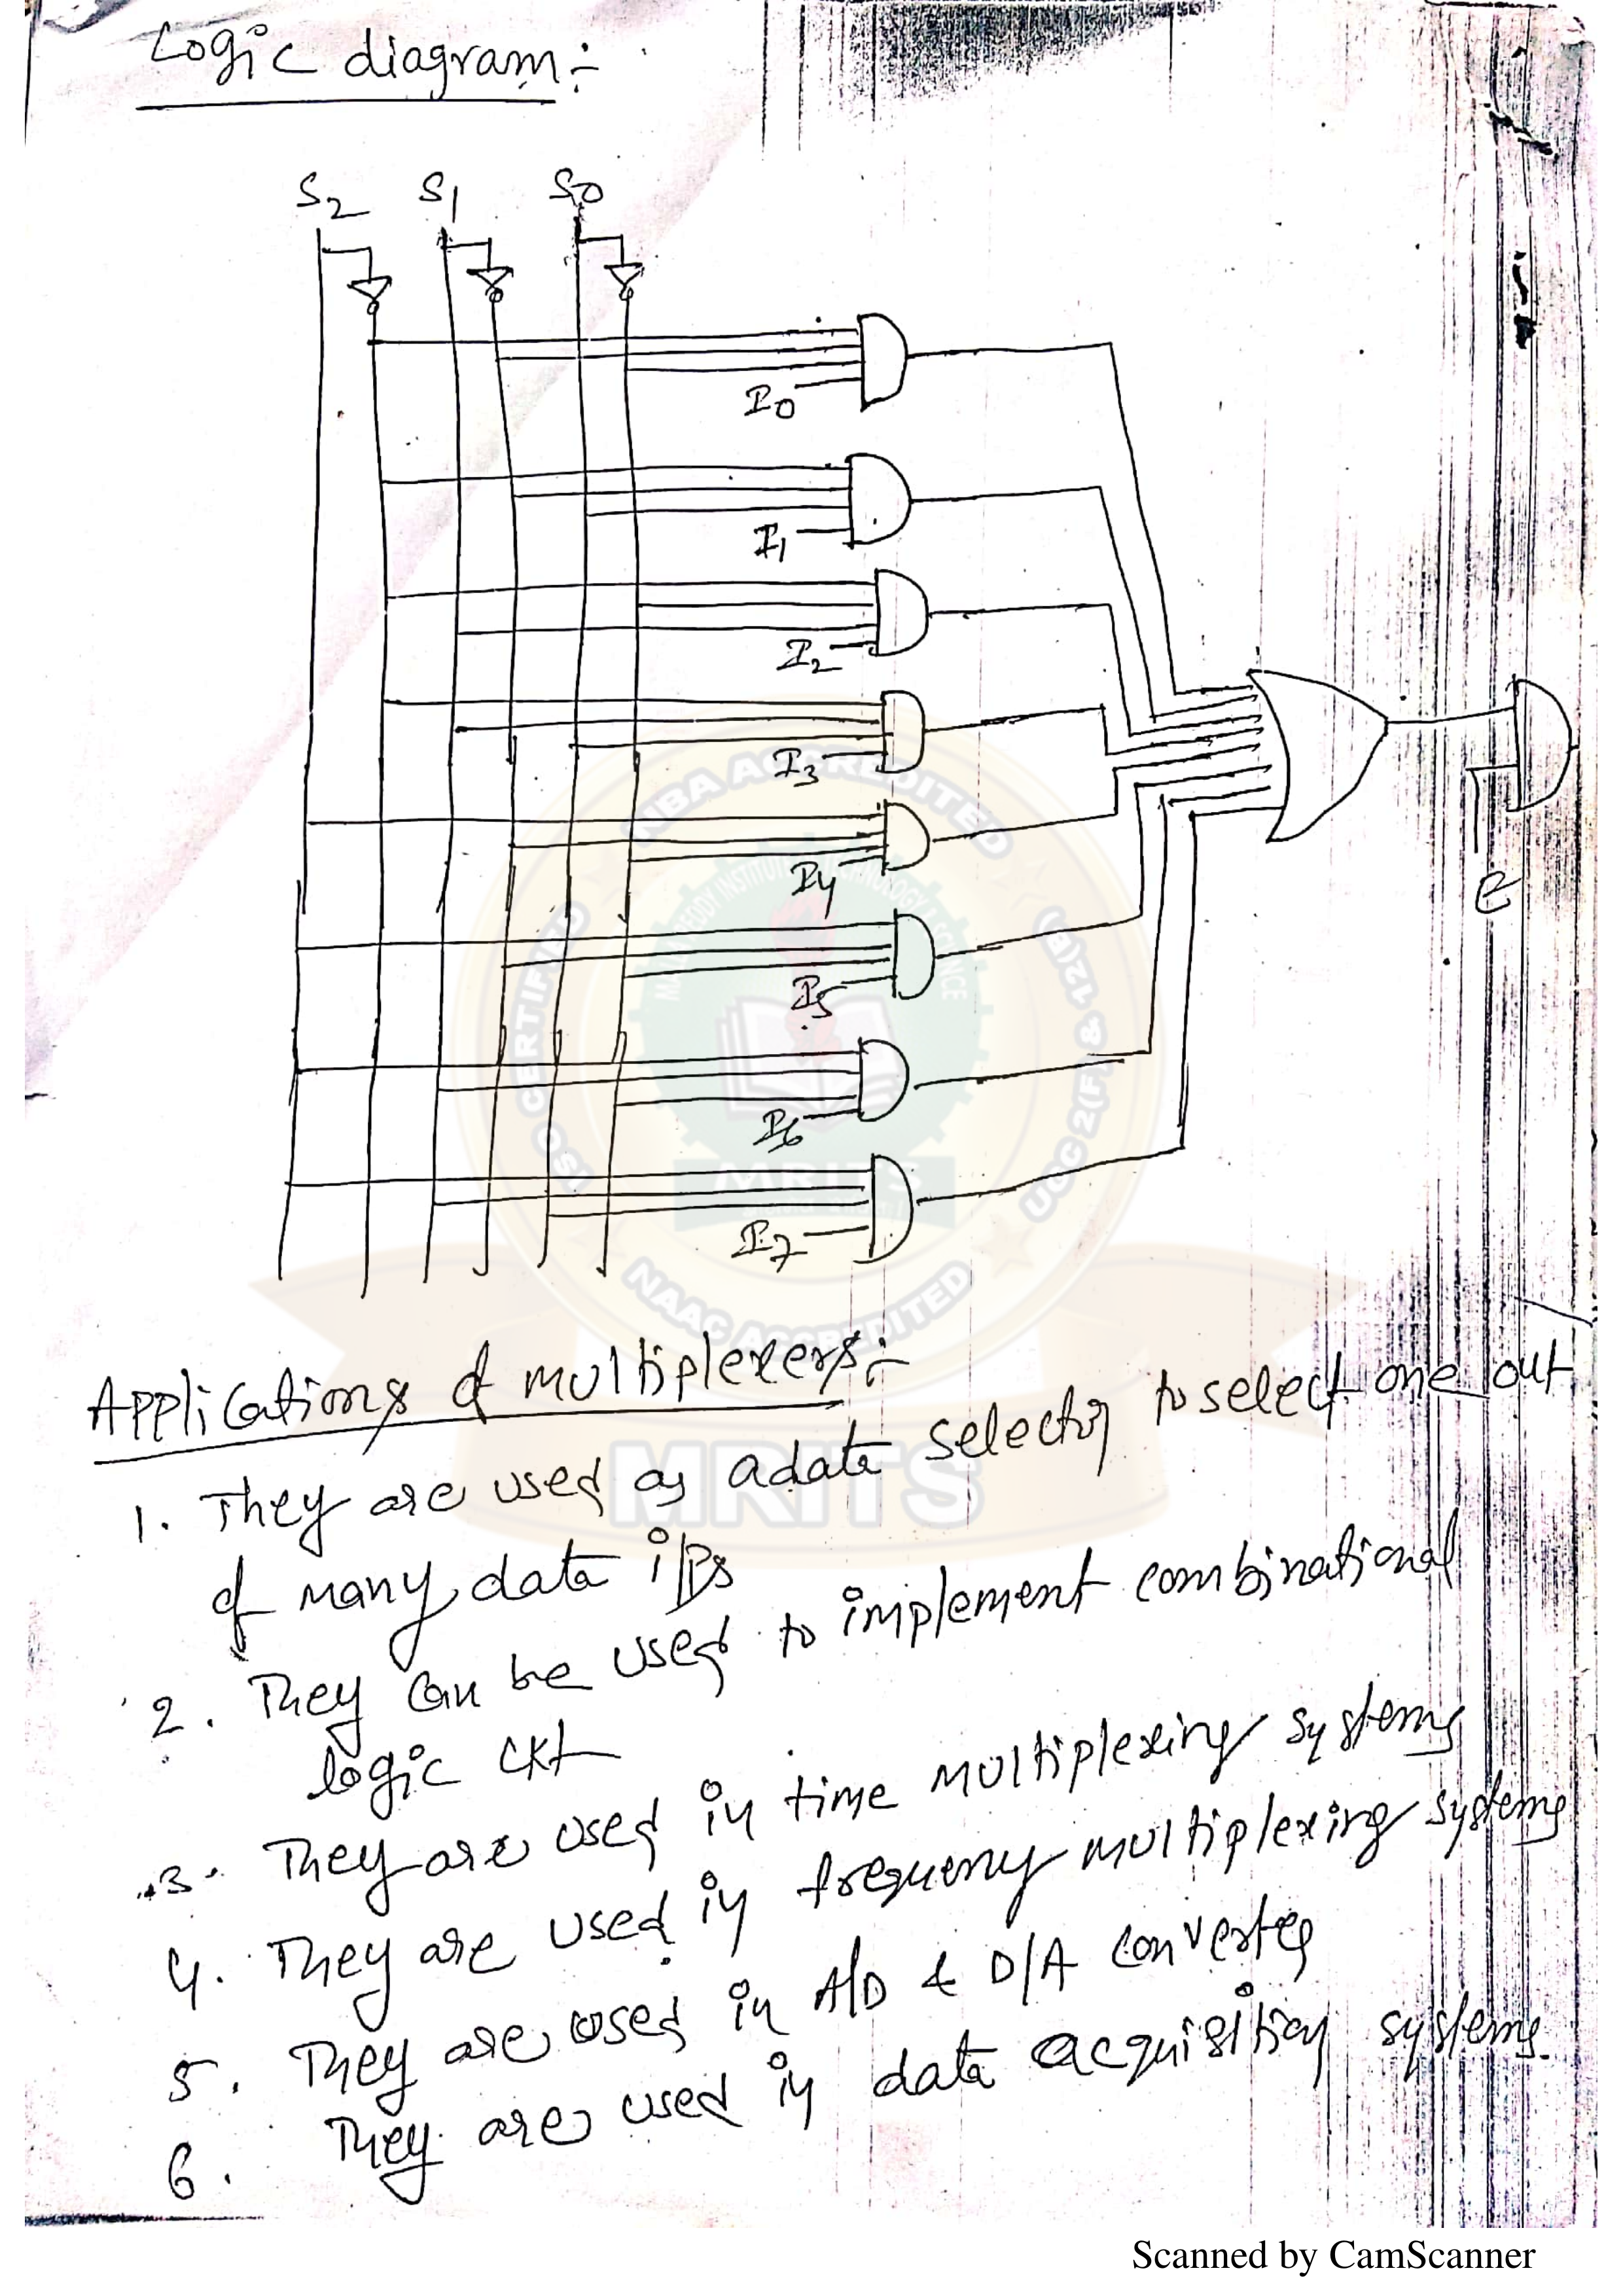 Logic diagram:-
S2 S1 S0
I0
I1
I2
I3
I4
I5
I6
I7
E
NBA ACCREDITED
CERTIFIED
UGC 2(F) & 12(B)
MRITS
NAAC ACCREDITED
MRITS
Applications of multiplexers:-
1. They are used as a data selector to select one out
of many data i/ps
2. They can be used to implement combinational
logic ckt
3. They are used in time multiplexing systems
4. They are used in frequency multiplexing systems
5. They are used in A/D & D/A converter
6. They are used in data acquisition systems.
Scanned by CamScanner